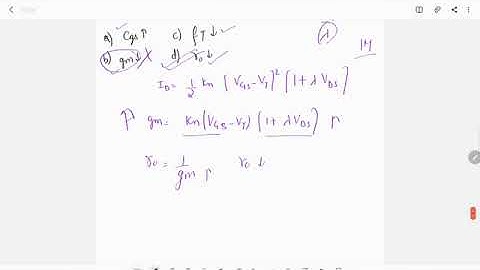 a) Cgs ↑ c) fT ↓ λ
b) gm ↓ d) r0 ↓ 1M
ID = 1/2 Kn [VGS-VT]² [1+λ VDS]
↑ gm = Kn(VGS-VT) (1+ λ VDS) ↑
r0 = 1/gm ↑ r0 ↓